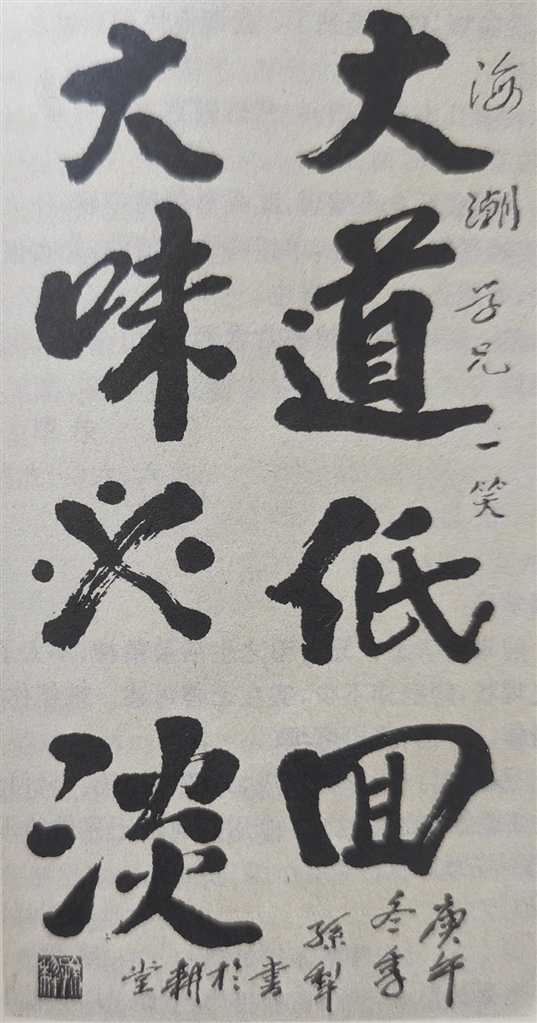 海潮学兄一笑
大道低回
大味必淡
庚午
冬季
孙犁
书于耕堂